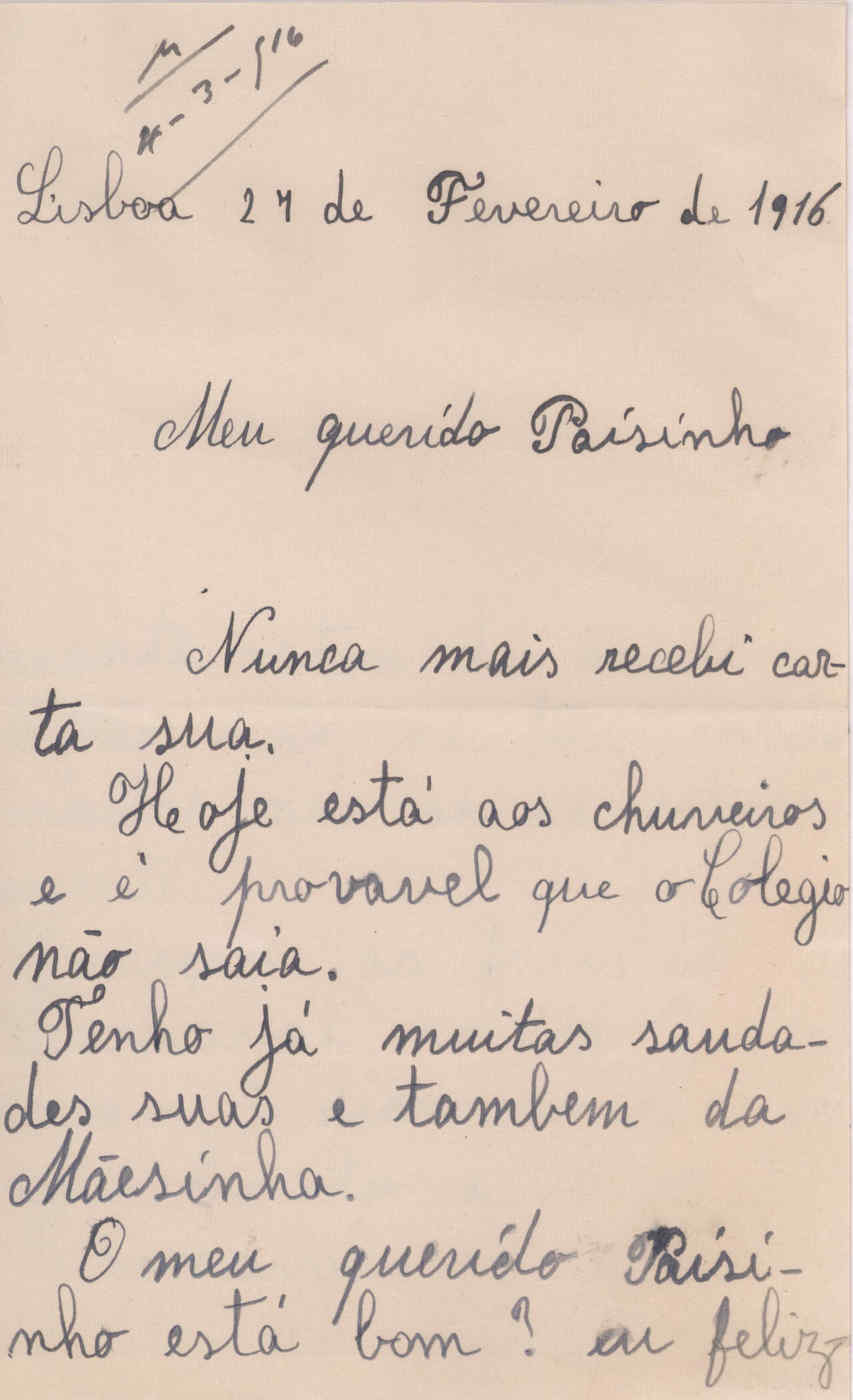 -3-916
Lisboa 27 de Fevereiro de 1916
Meu querido Paisinho
Nunca mais recebi car-
ta sua.
Hoje está aos chuveiros
e é provavel que o Colegio
não saia.
Tenho já muitas sauda-
des suas e tambem da
Mãesinha.
O meu querido Paisi-
nho está bom? eu feliz-